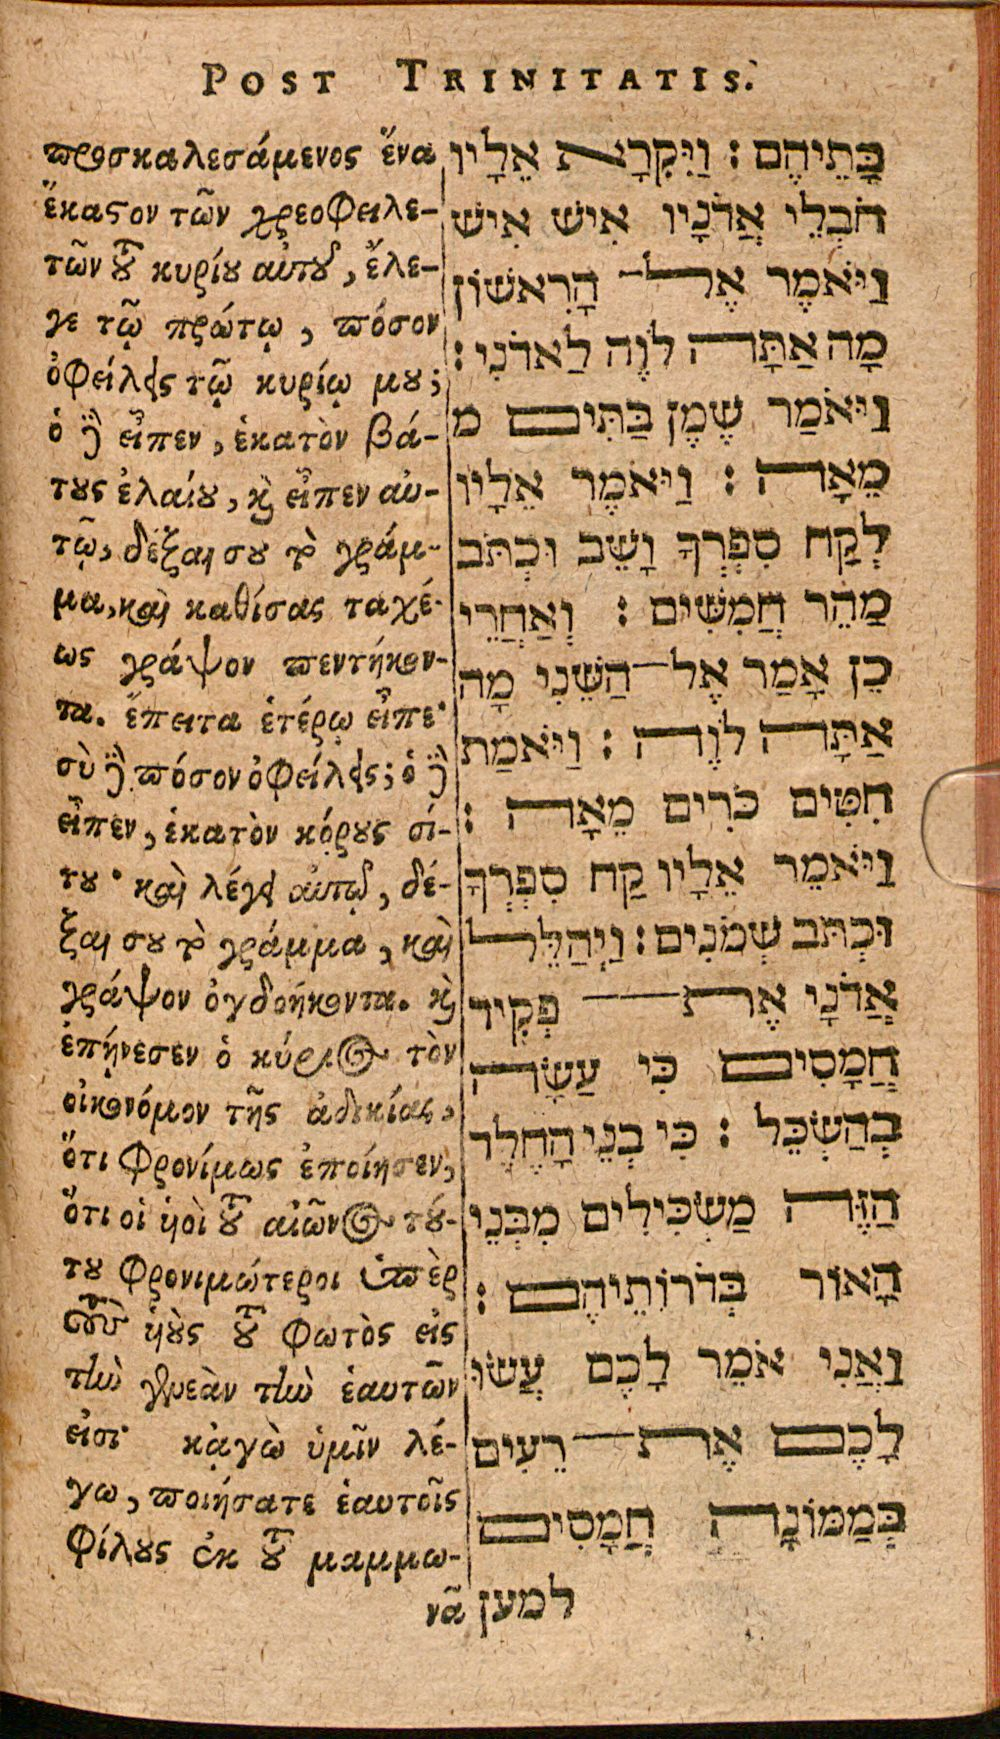 POST TRINITATIS.
προσκαλεσάμενος ἕνα
ἕκαστον τῶν χρεοφειλε-
τῶν τοῦ κυρίου αὐτοῦ, ἔλε-
γε τῷ πρώτῳ, πόσον
ὀφείλεις τῷ κυρίῳ μου;
ὁ δὲ εἶπεν, ἑκατὸν βά-
τους ἐλαίου, καὶ εἶπεν αὐ-
τῷ, δέξαι σου τὸ γράμ-
μα, καὶ καθίσας ταχέ-
ως γράψον πεντήκον-
τα. ἔπειτα ἑτέρῳ εἶπε·
σὺ δὲ πόσον ὀφείλεις; ὁ δὲ
εἶπεν, ἑκατὸν κόρους σί-
του· καὶ λέγει αὐτῷ, δέ-
ξαι σου τὸ γράμμα, καὶ
γράψον ὀγδοήκοντα. καὶ
ἐπῄνεσεν ὁ κύριος τὸν
οἰκονόμον τῆς ἀδικίας,
ὅτι φρονίμως ἐποίησεν,
ὅτι οἱ υἱοὶ τοῦ αἰῶνος τού-
του φρονιμώτεροι ὑπὲρ
τοὺς υἱοὺς τοῦ φωτὸς εἰς
τὴν γενεὰν τὴν ἑαυτῶν
εἰσι· κᾀγὼ ὑμῖν λέ-
γω, ποιήσατε ἑαυτοῖς
φίλους ἐκ τοῦ μαμμω-
νᾶ
בָּתֵּיהֶם : וַיִּקְרָא אֵלָיו
חֹבְלֵי אֲדֹנָיו אִישׁ אִישׁ
וַיֹּאמֶר אֶל־ הָרִאשׁוֹן
מָה אַתָּה לֹוֶה לַאדֹנִי :
וַיֹּאמַר שֶׁמֶן בַּתִּים מ
מֵאָה : וַיֹּאמֶר אֵלָיו
לְקַח סִפְרְךָ וָשֵׁב וּכְתֹב
מַהֵר חֲמִשִּׁים : וְאַחֲרֵי
כֵן אָמַר אֶל־הַשֵּׁנִי מָה
אַתָּה לֹוֶה : וַיֹּאמַת
חִטִּים כֹּרִים מֵאָה :
וַיֹּאמֵר אֵלָיו קַח סִפְרְךָ
וּכְתֹב שְׁמֹנִים : וַיְהַלֵּל
אֲדֹנָי אֶת־ פְּקִיד
חֲמָסִים כִּי עַשָׂה
בְהַשְׂכֵּל : כִּי בְנֵי הָחֶלֶד
הַזֶּה מַשְׂכִּילִים מִבְּנֵי
הָאוֹר בְּדֹרוֹתֵיהֶם :
וַאֲנִי אֹמֵר לָכֶם עֲשׂוּ
לָכֶם אֶת־רֵעִים
בְּמַמּוֹנָה חֲמָסִים
למען